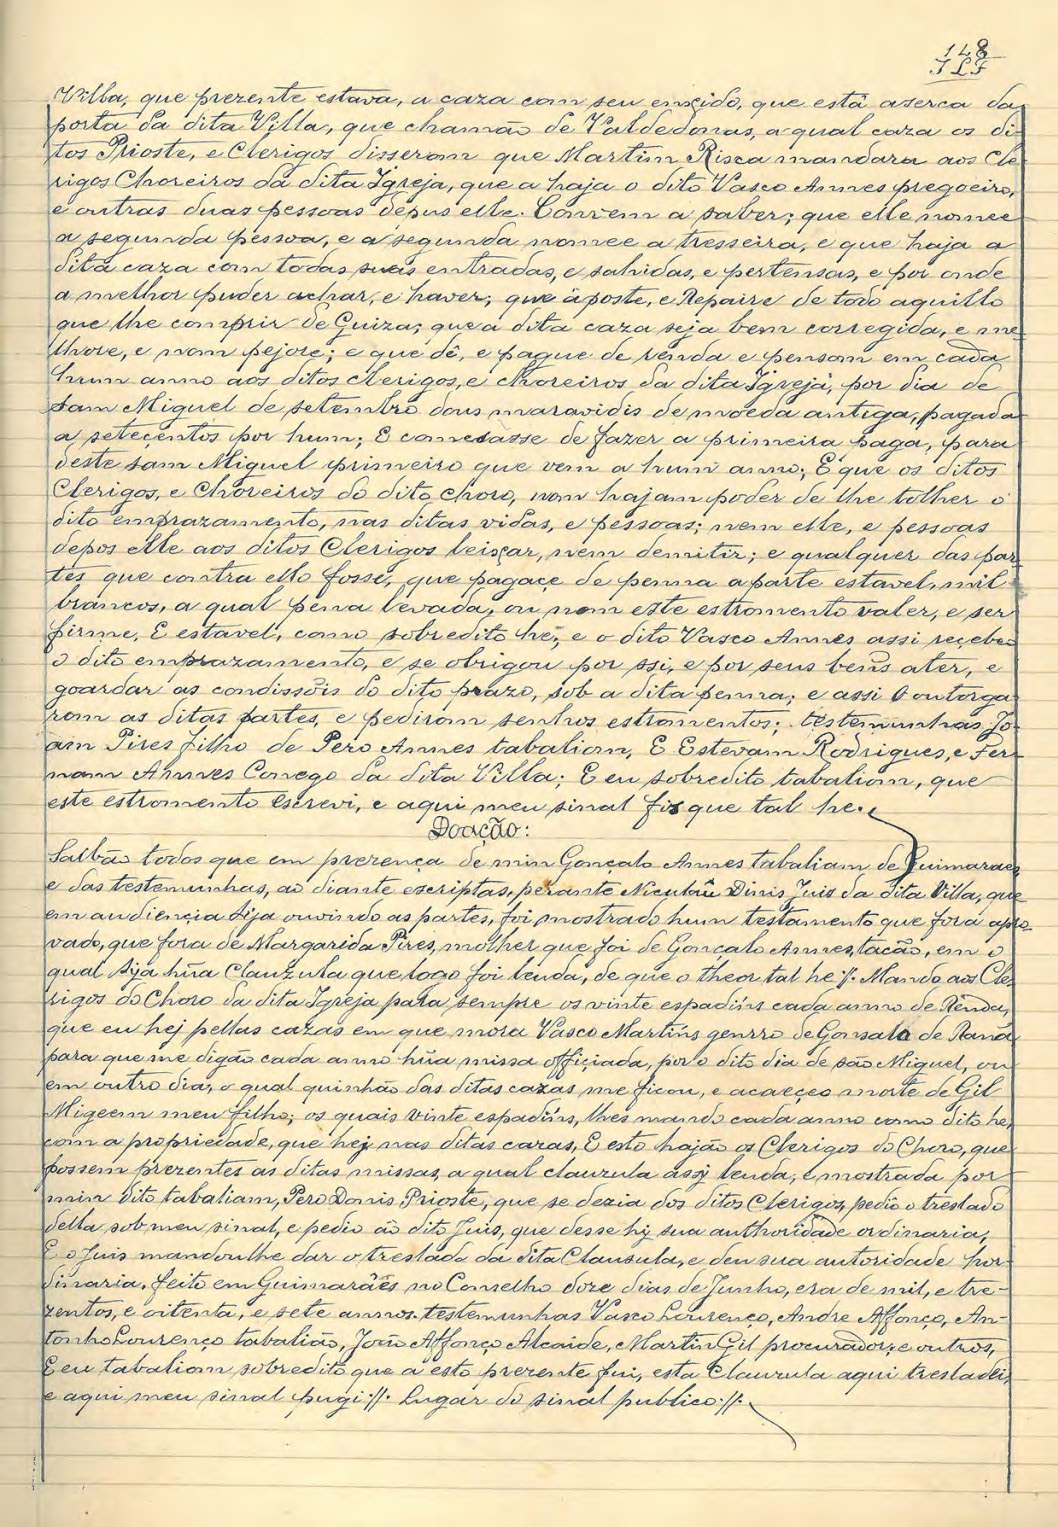 148
Villa, que prezente estava, a caza com seu enxido, que está aserca da
porta da dita Villa, que chamão de Valdedonas, a qual caza os di-
tos Prioste, e Clerigos disserom que Martim Risca mandara aos Cle-
rigos Choreiros da dita Igreja, que a haja o dito Vasco Annes pregoeiro,
e outras duas pessoas depus elle. Convem a saber; que elle nomee
a segunda pessoa, e a segunda nomee a tresseira, e que haja a
dita caza com todas suas entradas, e sahidas, e pertensas, e por onde
a melhor puder achar, e haver; que aposte, e Repaire de todo aquillo
que lhe comprir de Guiza; que a dita caza seja bem corregida, e me
lhore, e nom pejore; e que dê, e pague de renda e pensom em cada
hum anno aos ditos clerigos, e Choreiros da dita Igreja, por dia de
Sam Miguel de setembro dous maravidis de moeda antiga, pagada
a seteçentos por hum; E comesasse de fazer a primeira paga, para
deste sam Miguel primeiro que vem a hum anno; E que os ditos
Clerigos, e Choreiros do dito choro, nom hajam poder de lhe tolher o
dito emprazamento, nas ditas vidas, e pessoas; nem elle, e pessoas
depos elle aos ditos Clerigos leisçar, nem demitir; e qualquer das par
tes que contra ello fosse, que pagaçe de penna a parte estavel, mil
brancos, a qual pena levada, ou nom este estromento valer, e ser
firme, E estavel, como sobredito he; e o dito Vasco Annes assi reçebeo
o dito emprazamento, e se obrigou por ssi, e por seus bens ater, e
goardar as condissõis do dito prazo, sob a dita penna; e assi o outorga
rom as ditas partes, e pedirom senhos estromentos; testemunhas Jo-
am Pires filho de Pero Annes tabaliom, E Estevam Rodrigues, e Fer-
nam Annes Conego da dita Villa; E eu sobredito tabaliom, que
este estromento escrevi, e aqui meu sinal fis que tal he.
Doação:
Saibão todos que em prezença de mim Gonçalo Annes tabaliam de Guimaraes
e das testemunhas, ao diante escriptas, perante Dinis Juis da dita Villa, que
em audiençia sija ouvindo as partes, foi mostrado hum testamento que fora apro-
vado, que fora de Margarida Pires, molher que foi de Gonçalo Annes, tacão, em o
qual sija hũa Clauzula que logo foi leuda, de que o theor tal he //. Mando aos Cle-
rigos do Choro da dita Igreja para sempre os vinte espadins cada anno de Renda,
que eu hej pellas cazas em que mora Vasco Martins genrro de Gonsalo de
para que me digão cada anno hũa missa offiçiada, por o dito dia de são Miguel, ou
em outro dia, o qual quinhão das ditas cazas me ficou, e acaeçeo morte de Gil
Migeem meu filho; os quais vinte espadins, lhes mando cada anno como dito he,
com a propriedade, que hej nas ditas cazas, E esto hajão os Clerigos do Choro, que
fossem prezentes as ditas missas, a qual clauzula assy leuda, e mostrada por
mim dito tabaliam, Pero Domis Prioste, que se dezia dos ditos Clerigos, pedio o treslado
della sob meu sinal, e pedio ao dito Juis, que desse hy sua authoridade ordinaria,
E o Juis mandoulhe dar o treslado da dita Clausula, e deu sua autoridade hor-
dinaria, feito em Guimarães no Conselho doze dias de Junho, era de mil, e tre-
zentos, e oitenta, e sete annos. testemunhas Vasco Lourenço, Andre Affonço, An-
tonho Lourenço tabalião, João Affonço Alcaide, Martim Gil procurador, e outros,
E eu tabaliom sobredito que a esto prezente fui, esta Clauzula aqui tresladei,
e aqui meu sinal pugi //. Lugar do sinal publico //.